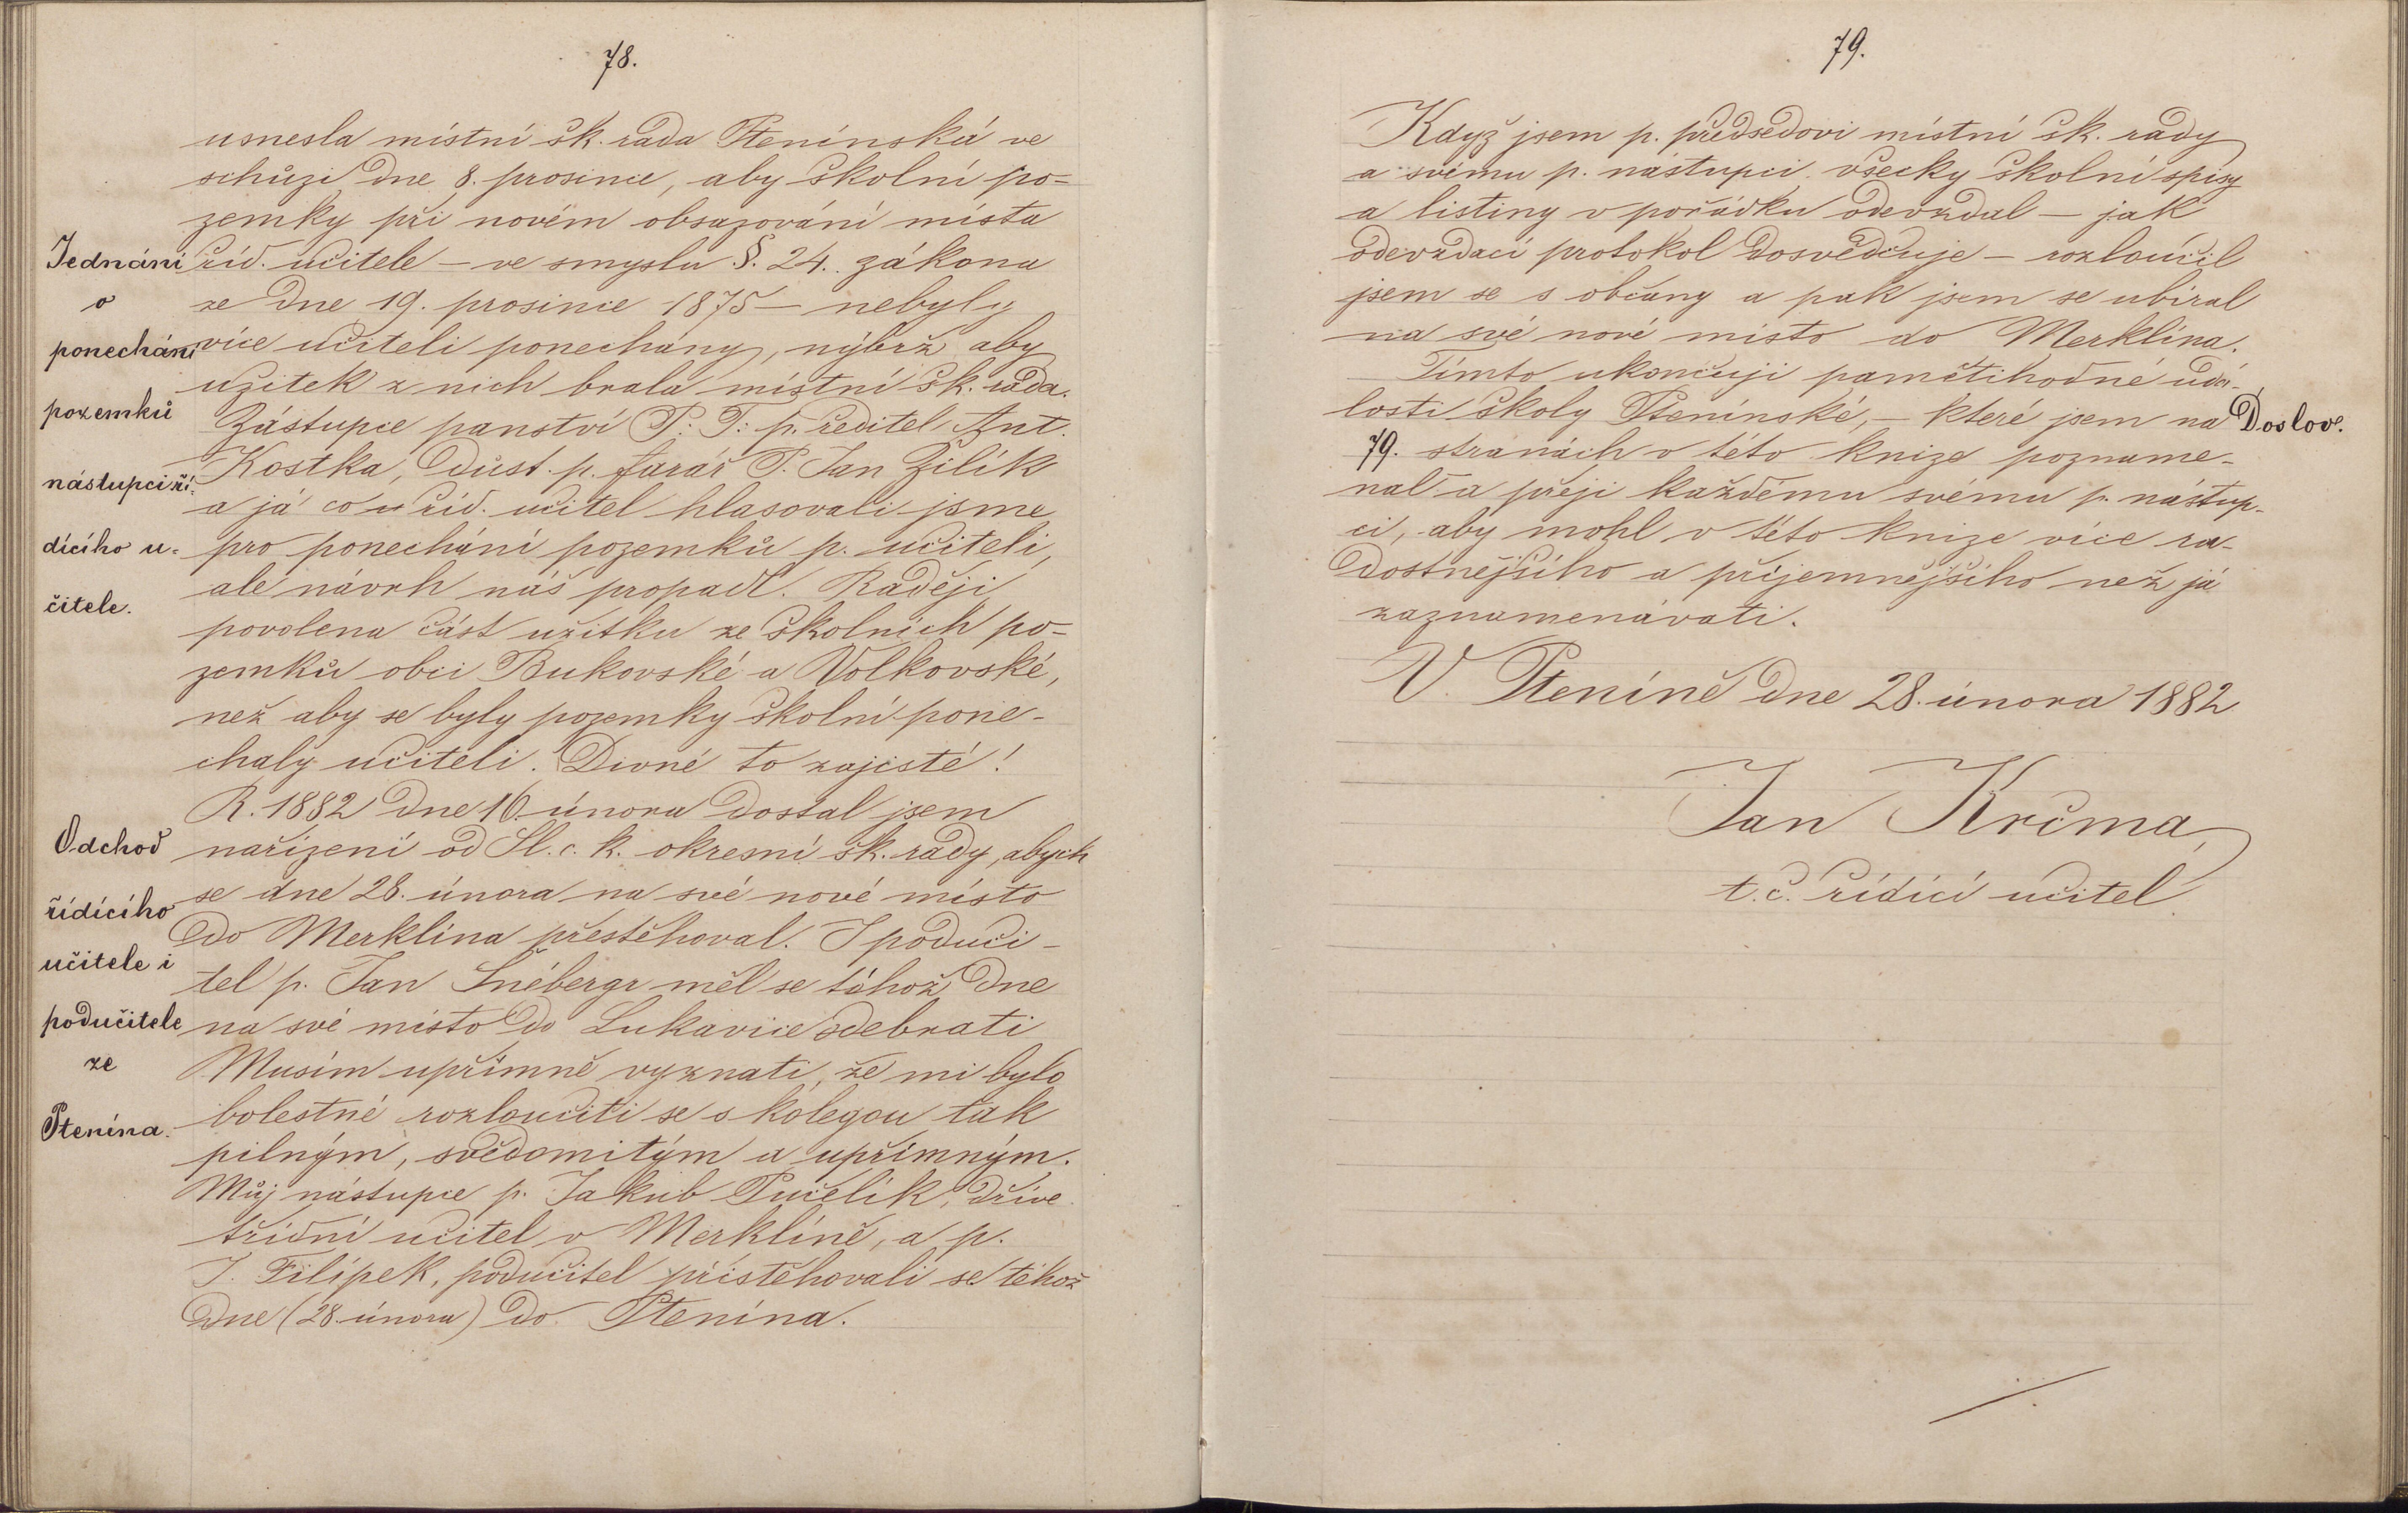 78.
usnesla místní šk. rada Ptenínská ve
schůzi dne 8. prosince, aby školní po-
zemky při novém obsazování místa
říd. učitele — ve smyslu §. 24. zákona
ze dne 19. prosince 1875 — nebyly
více učiteli ponechány, nýbrž aby
užitek z nich brala místní šk. rada.
Zástupce panství P. T. p. ředitel Ant.
Kostka, Důst. p. farář P. Jan Žilík
a já co říd. učitel hlasovali jsme
pro ponechání pozemků p. učiteli,
ale návrh náš propadl. Raději
povolena část užitku ze školních po-
zemků obci Bukovské a Volkovské,
než aby se byly pozemky školní pone-
chaly učiteli. Divné to zajisté!
Jednání
o
ponechání
pozemků
nástupci ří-
dícího u-
čitele.
R. 1882 dne 10. února dostal jsem
nařízení od Sl. c. k. okresní šk. rady, abych
se dne 28. února na své nové místo
do Merklína přestěhoval. I poduči-
tel p. Jan Šnébergr měl se téhož dne
na své místo do Lukavice odebrati
Musím upřímně vyznati, že mi bylo
bolestné rozloučiti se s kolegou tak
pilným, svědomitým a upřímným.
Můj nástupce p. Jakub Pučelík, dříve
třídní učitel v Merklíně, a p.
J. Filípek, podučitel přistěhovali se téhož
dne (28. února) do Ptenína.
Odchod
řídícího
učitele i
podučitele
ze
Ptenína.
79.
Když jsem p. předsedovi místní šk. rady
a svému p. nástupci všecky školní spisy
a listiny v pořádku odevzdal — jak
odevzdací protokol dosvědčuje — rozloučil
jsem se s občany a pak jsem se ubíral
na své nové místo do Merklína.
Tímto ukončuji pamětihodné udá-
losti školy Ptenínské, — které jsem na
79. stranách v této knize pozname-
nal a přeji každému svému p. nástup-
ci, aby mohl v této knize více ra-
dostnějšího a příjemnějšího než já
zaznamenávati.
Doslov.
V Pteníně dne 28. února 1882
Jan Krčma,
t. č. řídící učitel